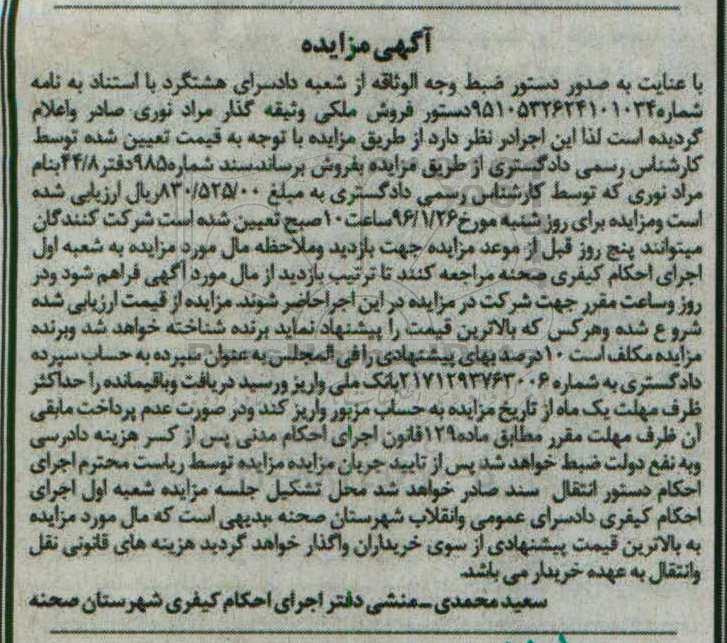 آگهی مزایده
با عنایت به صدور دستور ضبط وجه الوثاقه از شعبه دادسرای هشتگرد با استناد به نامه
شماره۹۵۱۰۵۳۲۶۲۴۱۰۱۰۳۴دستور فروش ملکی وثیقه گذار مراد نوری صادر واعلام
گردیده است لذا این اجرادر نظر دارد از طریق مزایده با توجه به قیمت تعیین شده توسط
کارشناس رسمی دادگستری از طریق مزایده بفروش برساند.سند شماره۹۸۵دفتر۴۴/۸بنام
مراد نوری که توسط کارشناس رسمی دادگستری به مبلغ ۸۳۰/۵۲۵/۰۰ریال ارزیابی شده
است ومزایده برای روز شنبه مورخ۹۶/۱/۲۶ساعت۱۰صبح تعیین شده است شرکت کنندگان
میتوانند پنج روز قبل از موعد مزایده جهت بازدید وملاحظه مال مورد مزایده به شعبه اول
اجرای احکام کیفری صحنه مراجعه کنند تا ترتیب بازدید از مال مورد آگهی فراهم شود ودر
روز وساعت مقرر جهت شرکت در مزایده در این اجراحاضر شوند. مزایده از قیمت ارزیابی شده
شروع شده وهرکس که بالاترین قیمت را پیشنهاد نماید برنده شناخته خواهد شد وبرنده
مزایده مکلف است ۱۰درصد بهای پیشنهادی را فی المجلس به عنوان سپرده به حساب سپرده
دادگستری به شماره ۲۱۷۱۲۹۳۷۶۳۰۰۶بانک ملی واریز ورسید دریافت وباقیمانده را حداکثر
ظرف مهلت یک ماه از تاریخ مزایده به حساب مزبور واریز کند ودر صورت عدم پرداخت مابقی
آن ظرف مهلت مقرر مطابق ماده۱۲۹قانون اجرای احکام مدنی پس از کسر هزینه دادرسی
وبه نفع دولت ضبط خواهد شد پس از تایید جریان مزایده مزایده توسط ریاست محترم اجرای
احکام دستور انتقال سند صادر خواهد شد محل تشکیل جلسه مزایده شعبه اول اجرای
احکام کیفری دادسرای عمومی وانقلاب شهرستان صحنه .بدیهی است که مال مورد مزایده
به بالاترین قیمت پیشنهادی از سوی خریداران واگذار خواهد گردید هزینه های قانونی نقل
وانتقال به عهده خریدار می باشد.
سعید محمدی -منشی دفتر اجرای احکام کیفری شهرستان صحنه